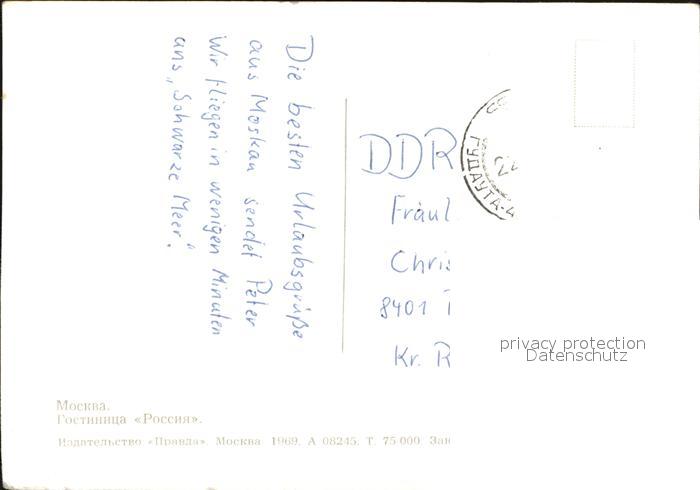 Die besten Urlaubsgrüße
aus Moskau sendet Peter
Wir fliegen in wenigen Minuten
ans „Schwarze Meer".
DDR
Fräul
Chris
8401
Kr. R
ГУДАУТА-4
privacy protection
Datenschutz
Москва.
Гостиница «Россия».
Издательство «Правда». Москва 1969. А 08245. Т. 75 000. Зак